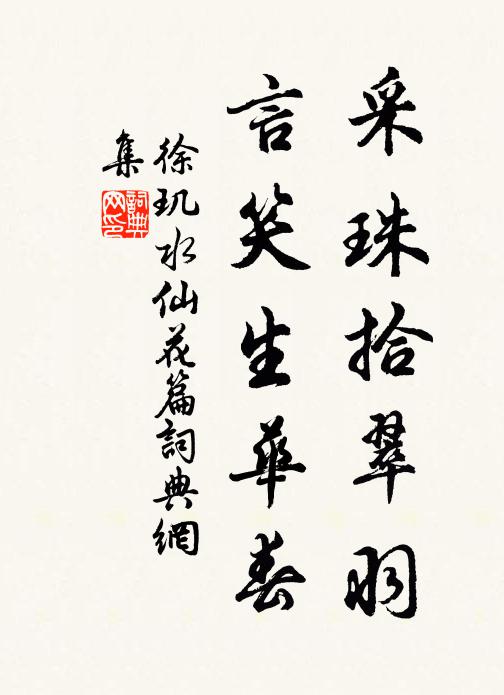 采珠拾翠羽
言笑生華春
徐玑水仙花篇詞典網
集
詞典網印